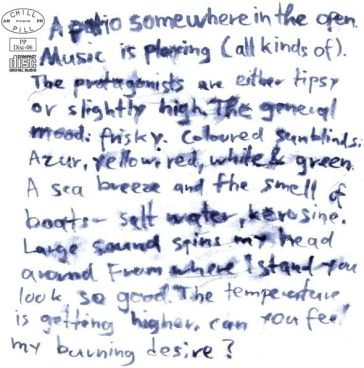 CHILL PILL
AM PM
PP
Disc-06
COMPACT
disc
DIGITAL AUDIO
A patio somewhere in the open.
Music is playing (all kinds of).
The protagonists are either tipsy
or slightly high. The general
mood: frisky. Coloured sunblinds.
Azur, yellow, red, white & green.
A sea breeze and the smell of
boats - salt water, kerosine.
Large sound spins my head
around. From where I stand you
look so good. The temperature
is getting higher, can you feel
my burning desire?